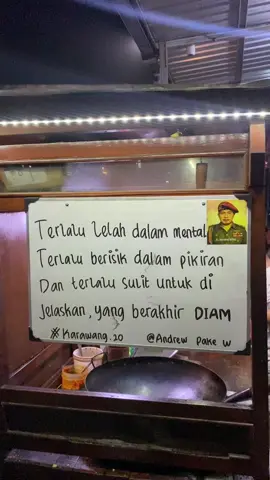 Terlalu Lelah dalam mental
Terlalu berisik dalam pikiran
Dan terlalu sulit untuk di
Jelaskan, yang berakhir DIAM
#Karawang.20 @Andrew pake w